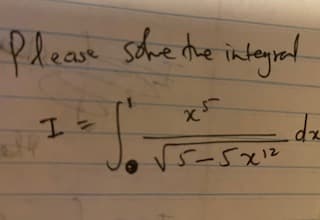 Please solve the integral
I = ∫₀¹ x⁵ / √(5-5x¹²) dx